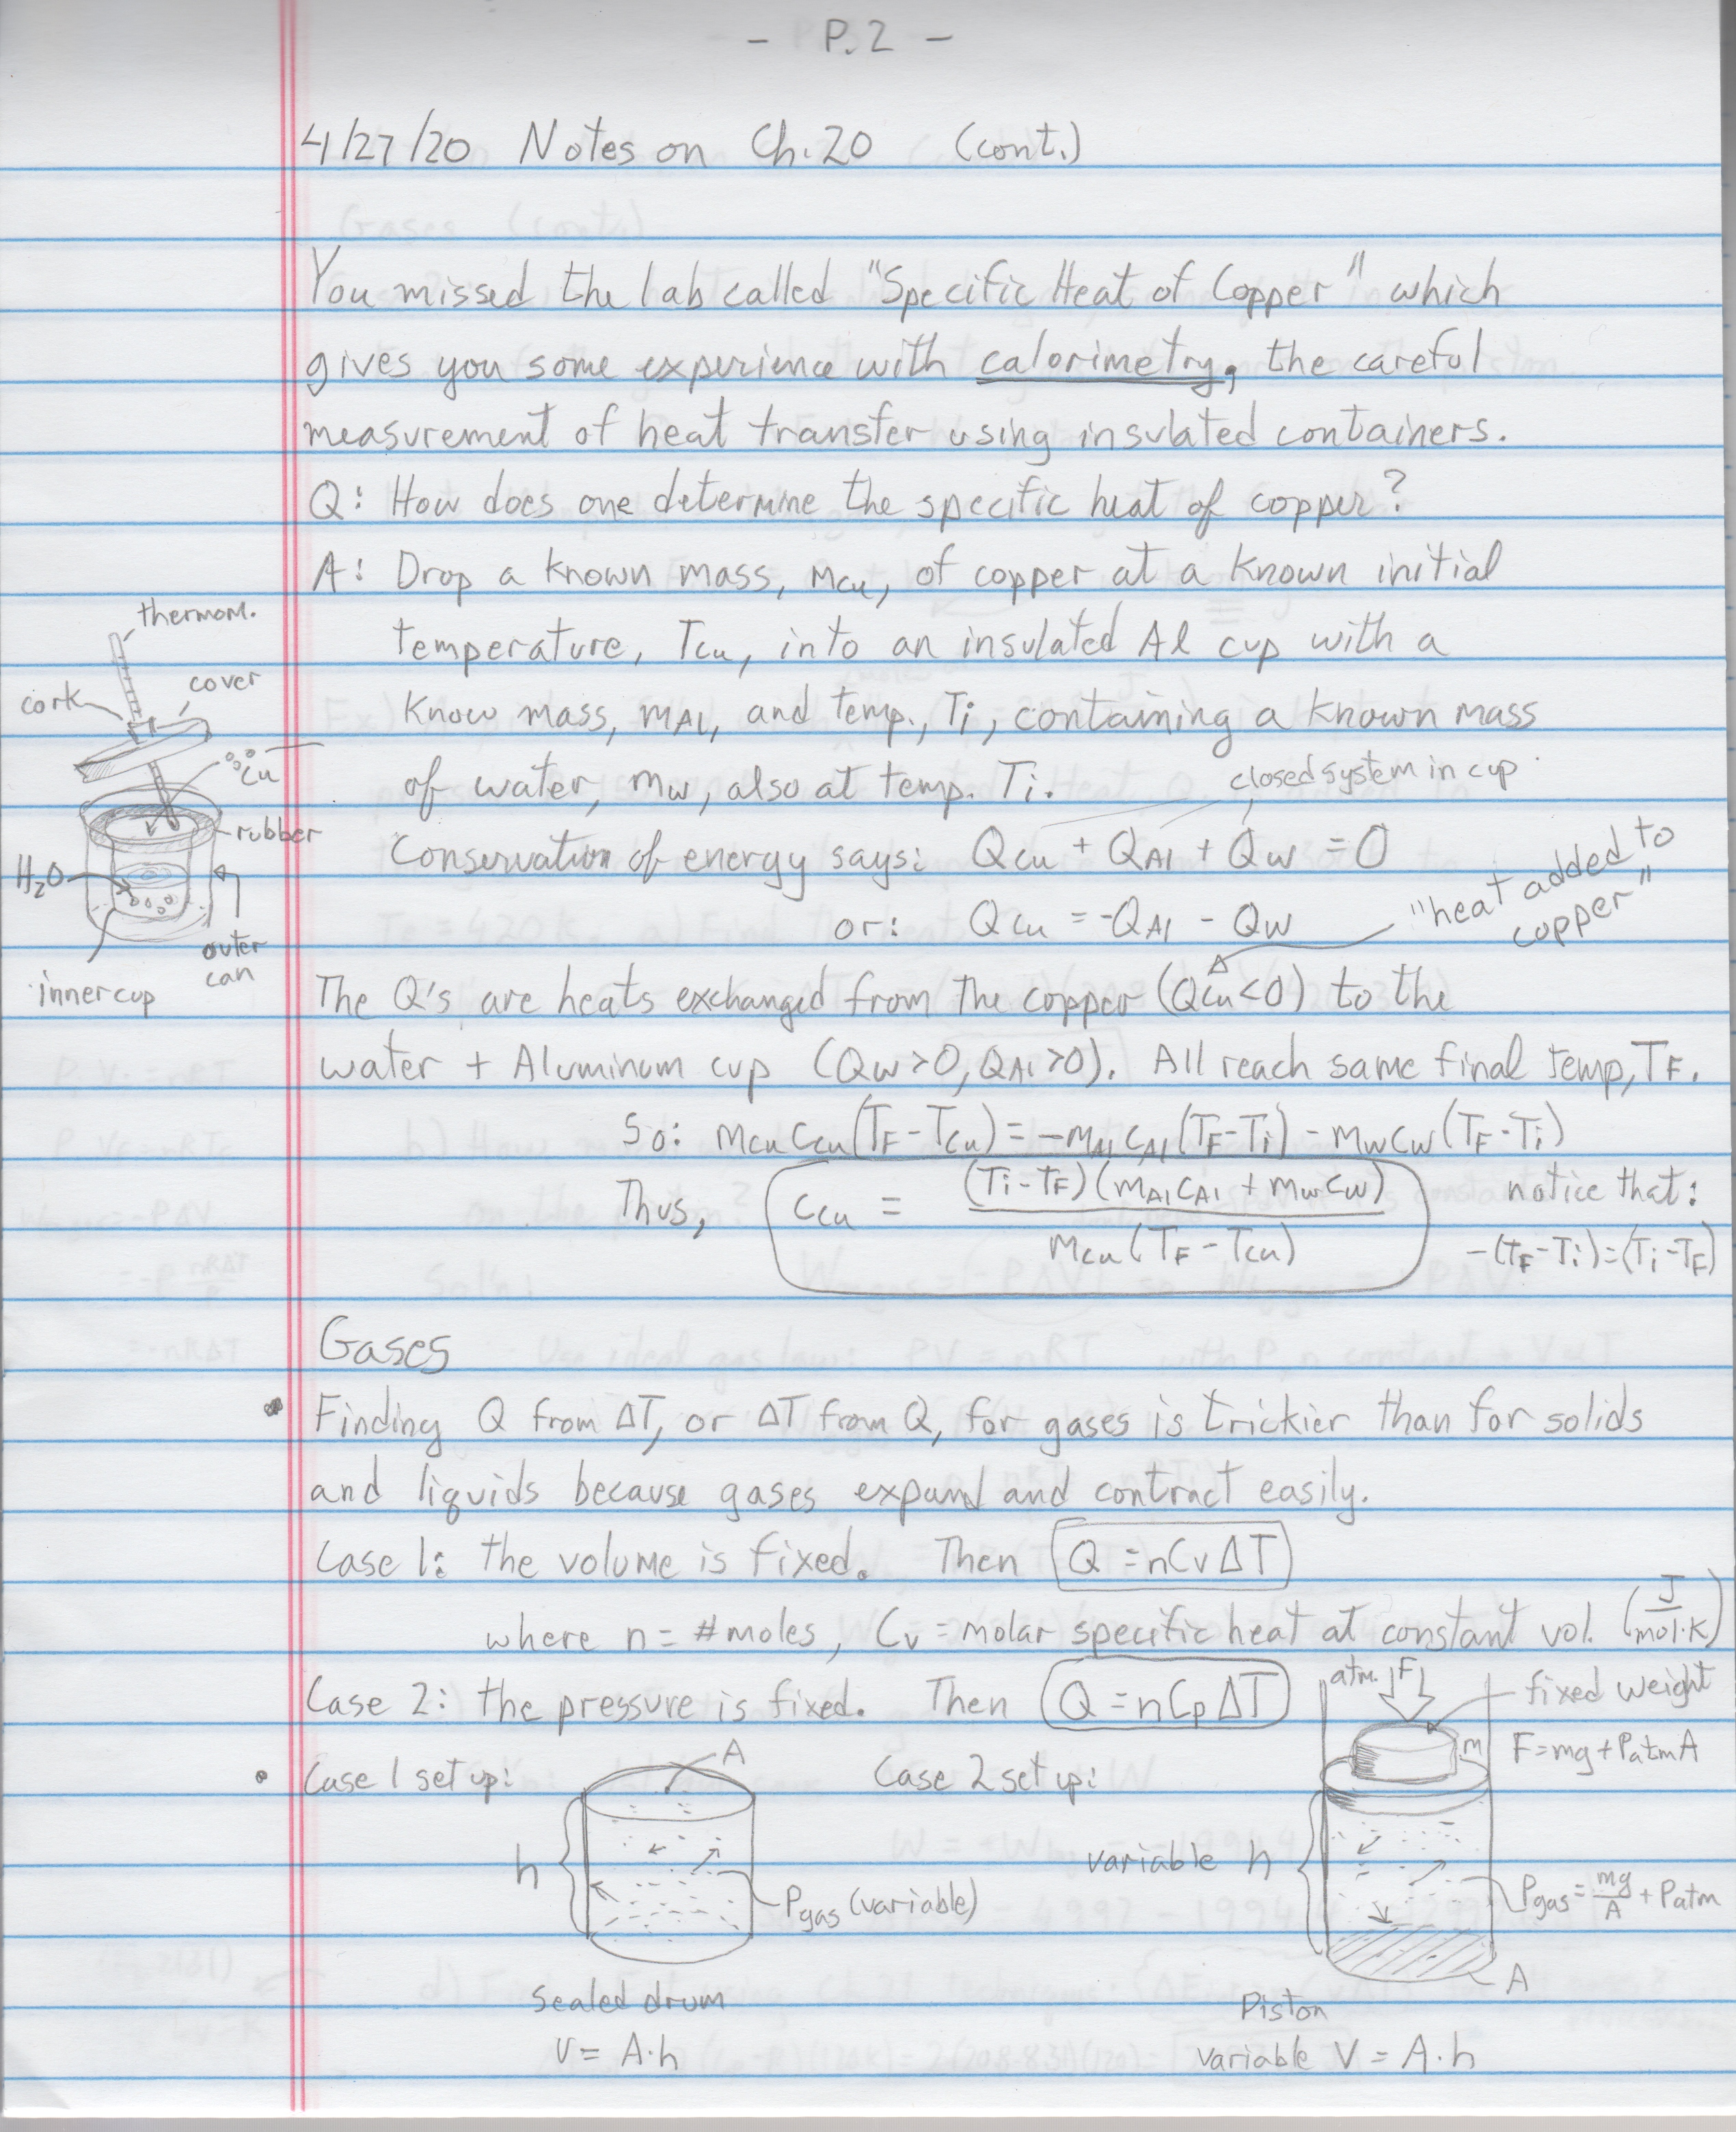 - P. 2 -
4/27/20 Notes on Ch. 20 (cont.)
You missed the lab called "Specific Heat of Copper" which
gives you some experience with calorimetry, the careful
measurement of heat transfer using insulated containers.
Q: How does one determine the specific heat of copper?
A: Drop a known mass, mCu, of copper at a known initial
temperature, TCu, into an insulated Al cup with a
know mass, mAl, and temp., Ti, containing a known mass
of water, mw, also at temp. Ti.
closed system in cup
Conservation of energy says: QCu + QAl + Qw = 0
or: QCu = -QAl - Qw
"heat added to
copper"
thermom.
cork
cover
Cu
rubber
H2O
outer
can
inner cup
The Q's are heats exchanged from the copper (QCu<0) to the
water + Aluminum cup (Qw>0, QAl>0). All reach same final temp, TF.
So: mCu cCu (TF - TCu) = -mAl cAl (TF - Ti) - mw cw (TF - Ti)
Thus, cCu = (Ti - TF)(mAl cAl + mw cw) / mCu (TF - TCu)
notice that:
-(TF - Ti) = (Ti - TF)
Gases
• Finding Q from ΔT, or ΔT from Q, for gases is trickier than for solids
and liquids because gases expand and contract easily.
Case 1: the volume is fixed. Then Q = nCvΔT
where n = # moles, Cv = molar specific heat at constant vol. (J/mol·K)
Case 2: the pressure is fixed. Then Q = nCpΔT
• Case 1 set up:
A
h
Pgas (variable)
Sealed drum
V = A·h
Case 2 set up:
atm. F
fixed weight
m
F = mg + Patm A
variable h
Pgas = mg/A + Patm
A
Piston
variable V = A·h